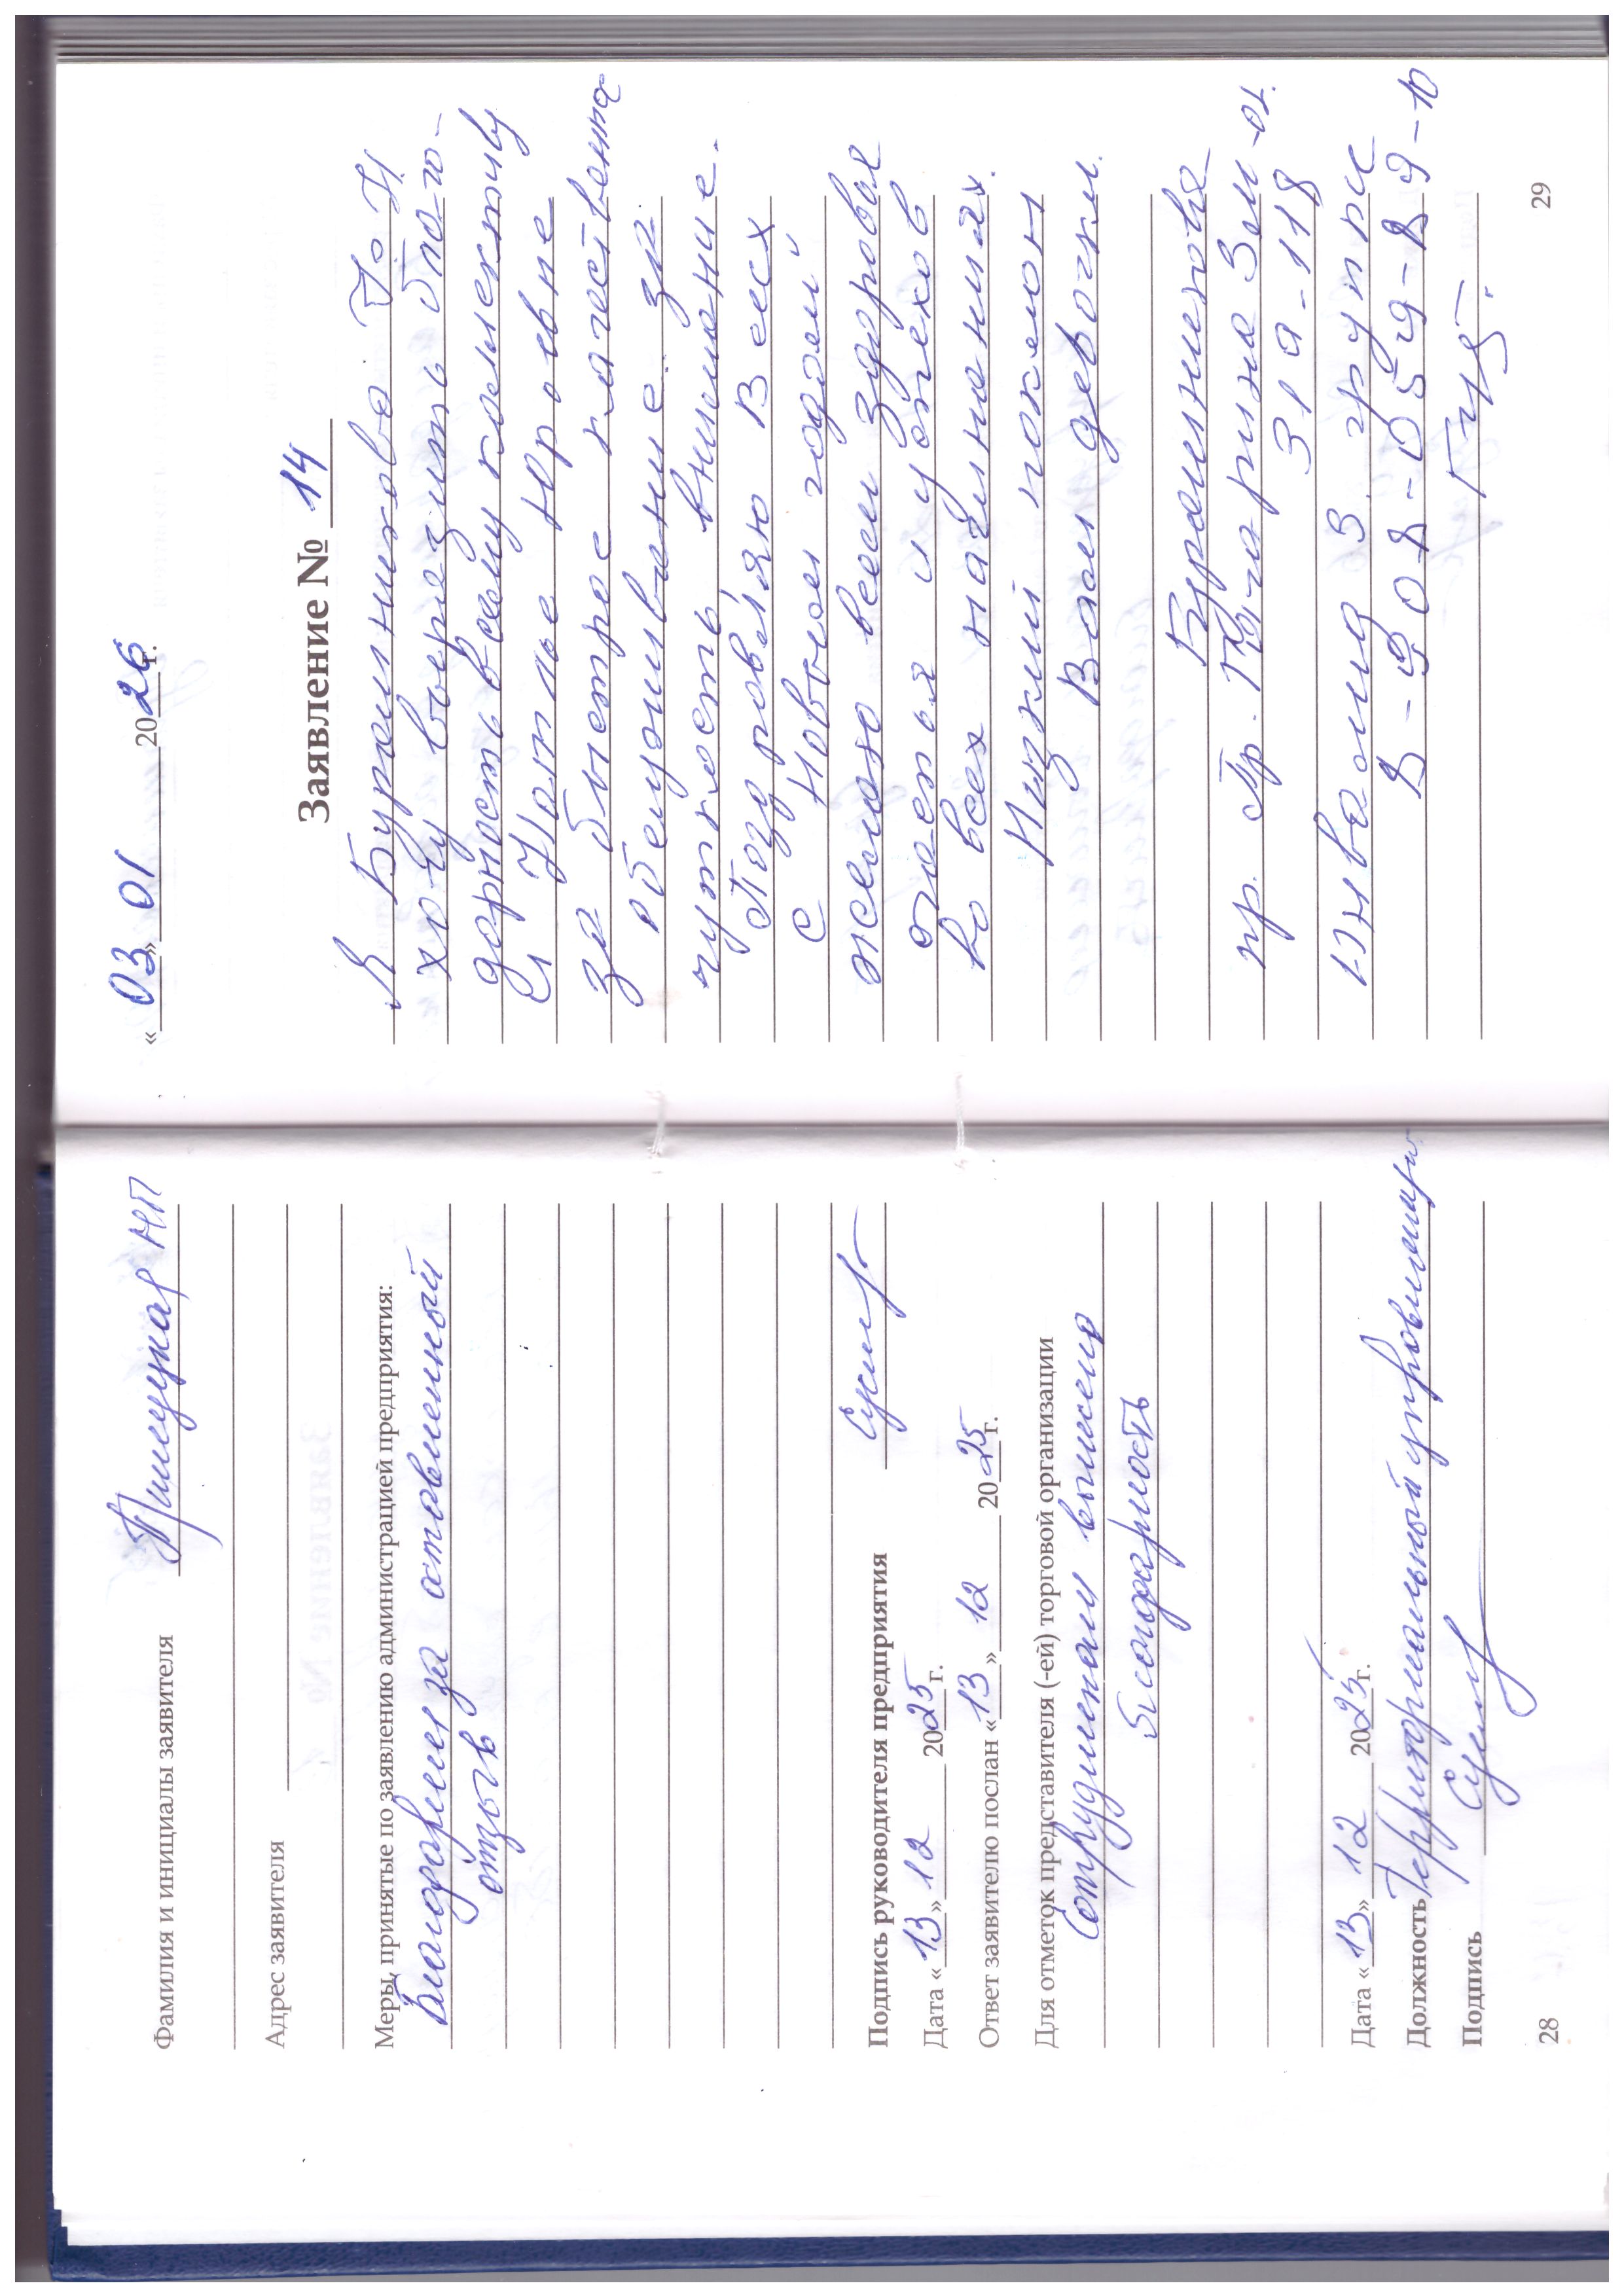 Фамилия и инициалы заявителя Пшецукар НП
Адрес заявителя
Меры, принятые по заявлению администрацией предприятия:
Благодарим за оставленный
отзыв
Подпись руководителя предприятия
Дата «13» 12 2025 г.
Ответ заявителю послан «13» 12 2025 г.
Для отметок представителя (-ей) торговой организации
Сотрудникам выписана
благодарность
Дата «13» 12 2025 г.
Должность Территориальный управляющий
Подпись
28
«03» 01 2026 г.
Заявление № 14
Я Буренникова
хочу выразить благо-
дарность всему коллективу
и Наталье Юрьевне
за быстрое качественно
обслуживание за
чуткость, внимание.
Поздровляю Всех
с Новым годом
желаю всем здоровья
счастья и успехов
во всех начинаниях.
Низкий поклон
Вам девочки.
Буренникова
пр. 
319-118
Инвалид 3 группы
8-908-059-89-10
29